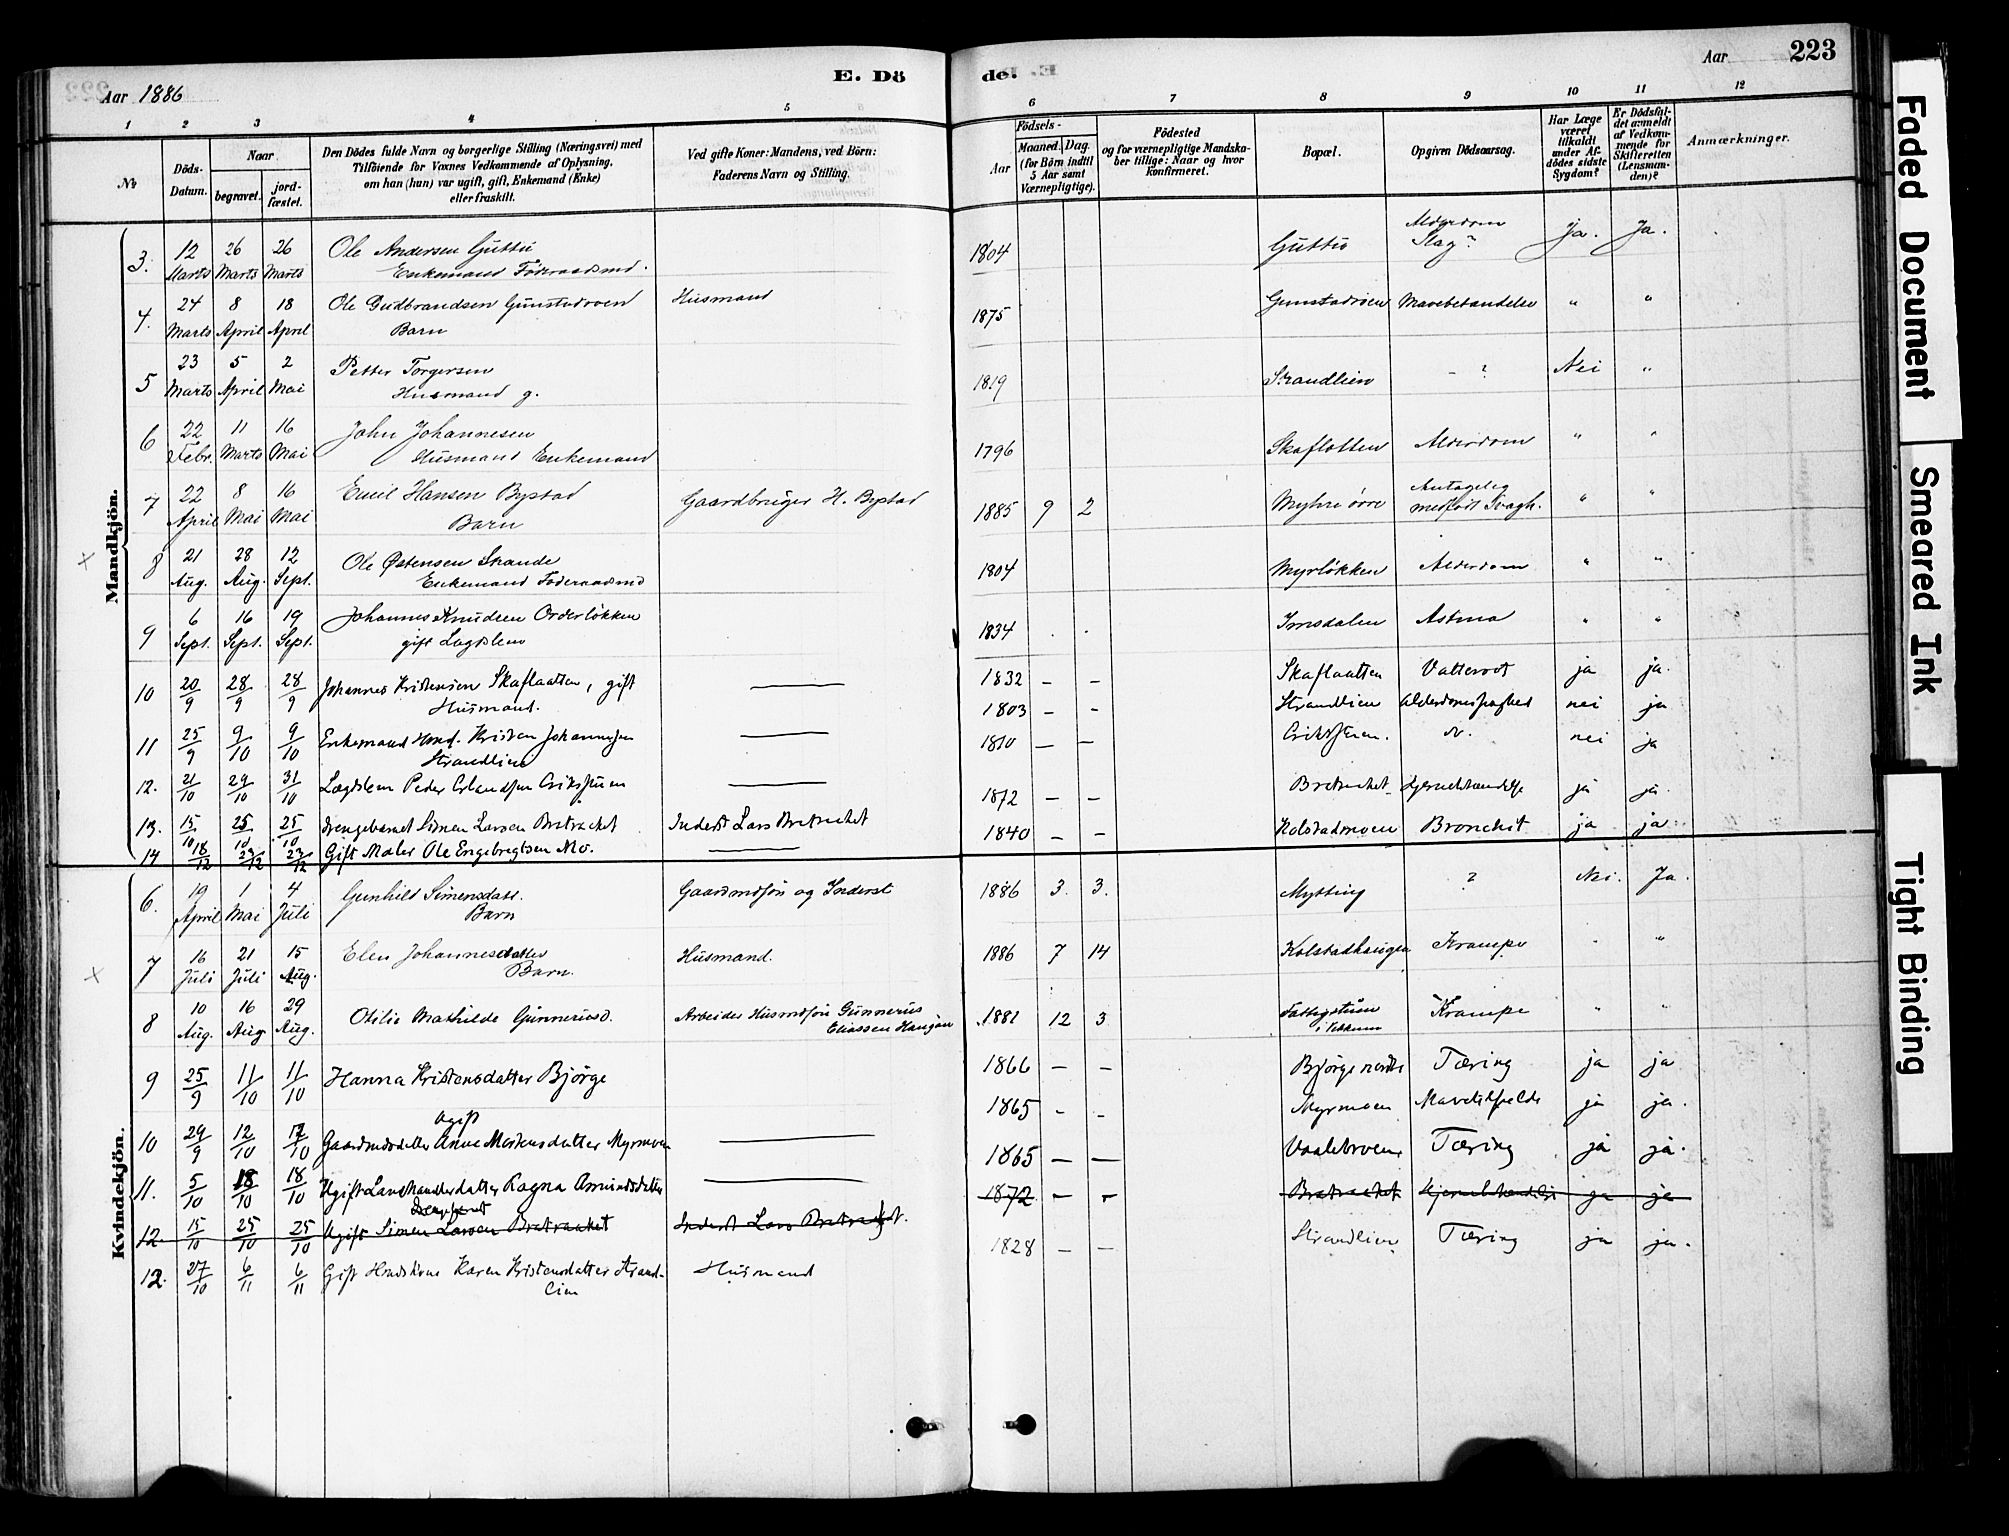 Aar 1886
E. Dö
de.
Aar
223
1 2 3 4 5 6 7 8 9 10 11 12
No
Döds-Datum.
Naar
begravet.
jord-fæstet.
Den Dödes fulde Navn og borgerlige Stilling (Næringsvei) med
Tilföiende for Voxnes Vedkommende af Oplysning,
om han (hun) var ugift, gift, Enkemand (Enke)
eller fraskilt.
Ved gifte Koner: Mandens, ved Börn:
Faderens Navn og Stilling.
Födsels-
Aar
Maaned. Dag.
(for Börn indtil
5 Aar samt
Værnepligtige).
Födested
og for værnepligtige Mandska-
ber tillige: Naar og hvor
konfirmeret.
Bopæl.
Opgiven Dödsaarsag.
Har Læge
været
tilkaldt
under Af-
dödes sidste
Sygdom?
Er Dödsfal-
det anmeldt
af Vedkom-
mende for
Skifteretten
(Lensman-
den)?
Anmærkninger.
Mandkjön.
3. 12 Marts 26 Marts 26 Marts Ole Andersen Guttu 1804 Guttu Alderdom Slag? Ja. Ja.
Enkemand Föderaadsmd.
4. 24 Marts 8 April 18 April Ole Gudbrandsen Gunstadroen Husmand 1875 Gunstadroen Mavebetændelse " "
Barn
5 23 Marts 5 April 2 Mai Petter Torgersen 1819 Strandlien - ? Nei "
Husmand g.
6 22 Febr. 11 Marts 16 Mai John Johannesen 1796 Skaflotten Alderdom " "
Husmand Enkemand
7 22 April 8 Mai 16 Mai Emil Hansen Bystad Gaardbruger H. Bystad 1885 9 2 Myhre övre Antagelig medfödt Svagh. " "
Barn
8 21 Aug. 28 Aug. 12 Sept. Ole Østensen Skande 1804 Myrløkken Alderdom " "
Enkemand Föderaadsmd
9 6 Sept. 16 Sept. 19 Sept. Johannes Knudsen Orderløkken 1834 Imsdalen Astma " "
gift Lægdslem
10 20/9 28/9 28/9 Johannes Kristensen Skaflaatten, gift 1832 - - Skaflaatten Vattersot ja ja.
Husmand.
11 25/9 9/10 9/10 Enkemand Hmd. Kristen Johannesen 1803 - - Strandlien Alderdomssvaghed nei ja
Strandlien
12. 21/10 29/10 31/10 Lægdslem Peder Erlandsen Eriksstuen 1810 - - Eriksstuen. do. nei ja
13. 15/10 25/10 25/10 Drengebarnet Simen Larsen Bratraket Inderst Lars Bratraket 1872 - - Bratraket Hjernebetændelse ja ja.
14 18/12 23/12 23/12 Gift Maler Ole Engebregtsen Mo. 1840 - - Kolstadmoen Bronchit ja ja
Kvindekjön.
6. 19 April 1 Mai 4 Juli Gunhild Simensdatt. Gaardmdsön og Inderst 1886 3. 3. Mytting ? Nei. Ja.
Barn
7 16 Juli 21 Juli 15 Aug. Elen Johannesdatter Husmand. 1886 7 14 Kolstadhaugen Krampe " "
Barn.
8 10 Aug. 16 Aug 29 Aug. Otilie Mathilde Gunneriusd. Arbeider Husmdsön Gunnerius 1881 12 3 Fattigstuen Krampe " "
Eliassen Haugen
9 25/9 11/10 11/10 Hanna Kristensdatter Bjørge 1866 - - Bjørge nordre Tæring ja ja
10 29/9 12/10 17/10 Ugift Gaardmdsdatter Anne Mortensdatter Myrmoen 1865 - - Myrmoen ja ja.
11. 5/10 18/10 18/10 Ugift Landhandlerdatter Ragna Amundsdatter 1865 - - Vaalebroen Tæring ja ja.
12. 15/10 25/10 25/10 Ugift Simen Larsen Bratraket Inderst Lars Bratraket. 1872 - - Bratraket Hjernebetændelse ja ja
12. 27/10 6/11 6/11 Gift Hmdskone Karen Kristensdatter Strand- Husmand 1828 - - Strandlien Tæring ja ja.
lien
Faded Document
Smeared Ink
Tight Binding